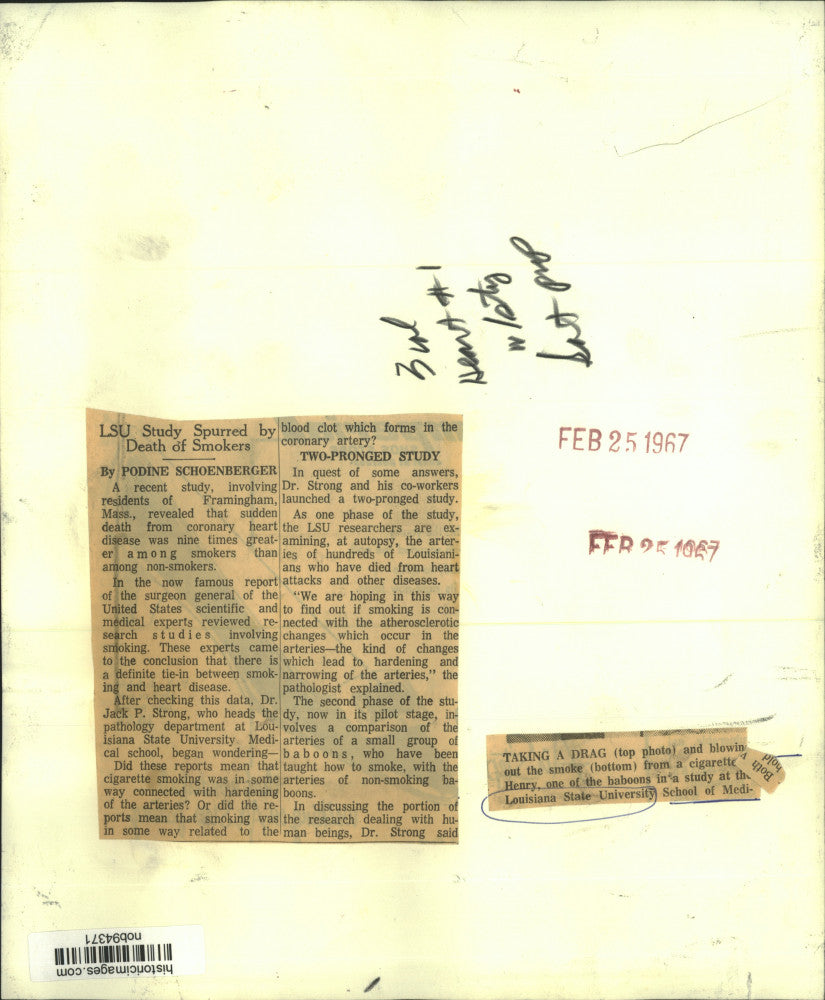 3 col
Heart #1
FEB 25 1967
FEB 25 1967
LSU Study Spurred by
Death of Smokers
By PODINE SCHOENBERGER
A recent study, involving
residents of Framingham,
Mass., revealed that sudden
death from coronary heart
disease was nine times great-
er among smokers than
among non-smokers.
In the now famous report
of the surgeon general of the
United States scientific and
medical experts reviewed re-
search studies involving
smoking. These experts came
to the conclusion that there is
a definite tie-in between smok-
ing and heart disease.
After checking this data, Dr.
Jack P. Strong, who heads the
pathology department at Lou-
isiana State University Medi-
cal school, began wondering—
Did these reports mean that
cigarette smoking was in some
way connected with hardening
of the arteries? Or did the re-
ports mean that smoking was
in some way related to the
blood clot which forms in the
coronary artery?
TWO-PRONGED STUDY
In quest of some answers,
Dr. Strong and his co-workers
launched a two-pronged study.
As one phase of the study,
the LSU researchers are ex-
amining, at autopsy, the arter-
ies of hundreds of Louisiani-
ans who have died from heart
attacks and other diseases.
"We are hoping in this way
to find out if smoking is con-
nected with the atherosclerotic
changes which occur in the
arteries—the kind of changes
which lead to hardening and
narrowing of the arteries," the
pathologist explained.
The second phase of the stu-
dy, now in its pilot stage, in-
volves a comparison of the
arteries of a small group of
baboons, who have been
taught how to smoke, with the
arteries of non-smoking ba-
boons.
In discussing the portion of
the research dealing with hu-
man beings, Dr. Strong said
TAKING A DRAG (top photo) and blowin
out the smoke (bottom) from a cigarette
Henry, one of the baboons in a study at the
Louisiana State University School of Medi-
Both
hold
historicimages.com
nob94371